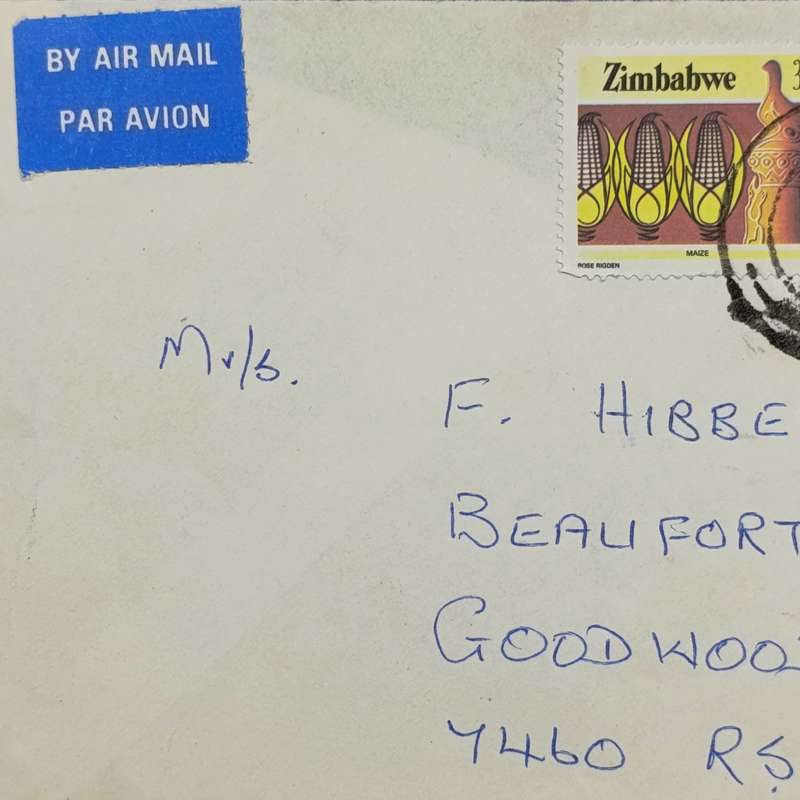 BY AIR MAIL
PAR AVION
Zimbabwe 3
MAIZE
ROSE RIGDEN
Mr/s.
F. HIBBE
BEAUFORT
GOODWOOD
7460 RS